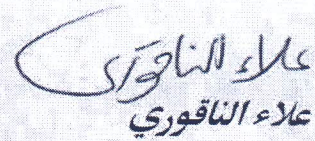 علاء الناقوري
علاء الناقوري